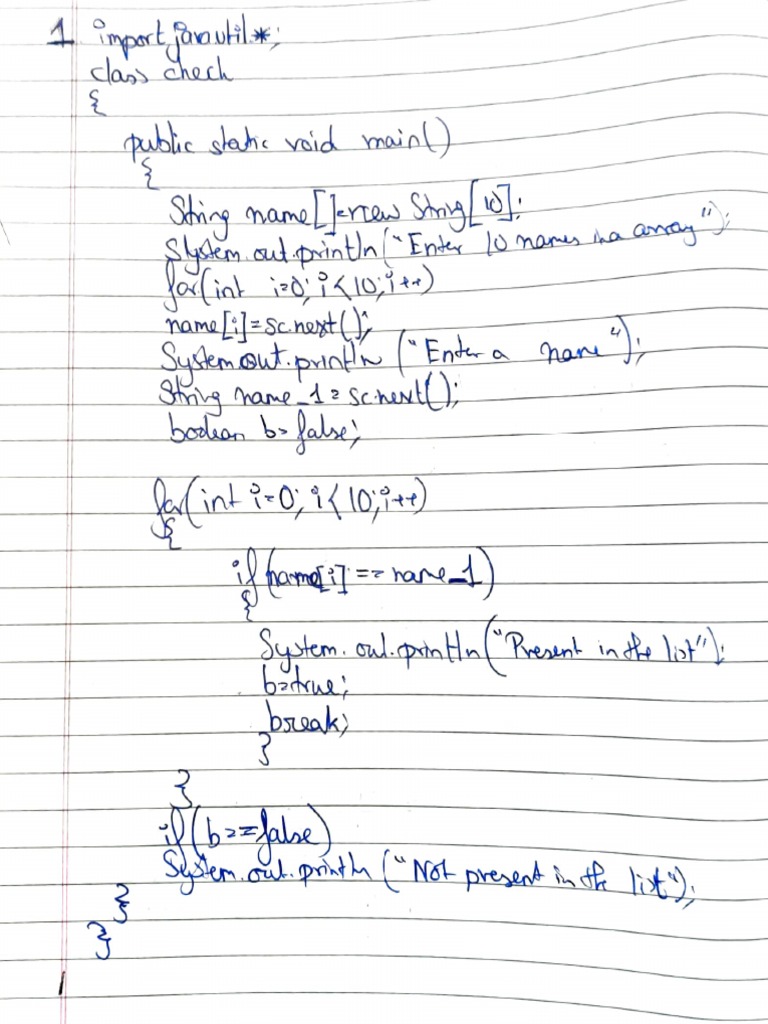 1 import java.util.*;
class check
{
public static void main()
{
String name[]=new String[10];
System.out.println("Enter 10 names in a array");
for(int i=0; i<10; i++)
name[i]=sc.next();
System.out.println ("Enter a name");
String name_1 = sc.next();
boolean b= false;
for(int i=0; i<10; i++)
{
if(name[i] == name_1)
{
System.out.println("Present in the list");
b=true;
break;
}
}
if(b==false)
System.out.println ("Not present in the list");
}
}